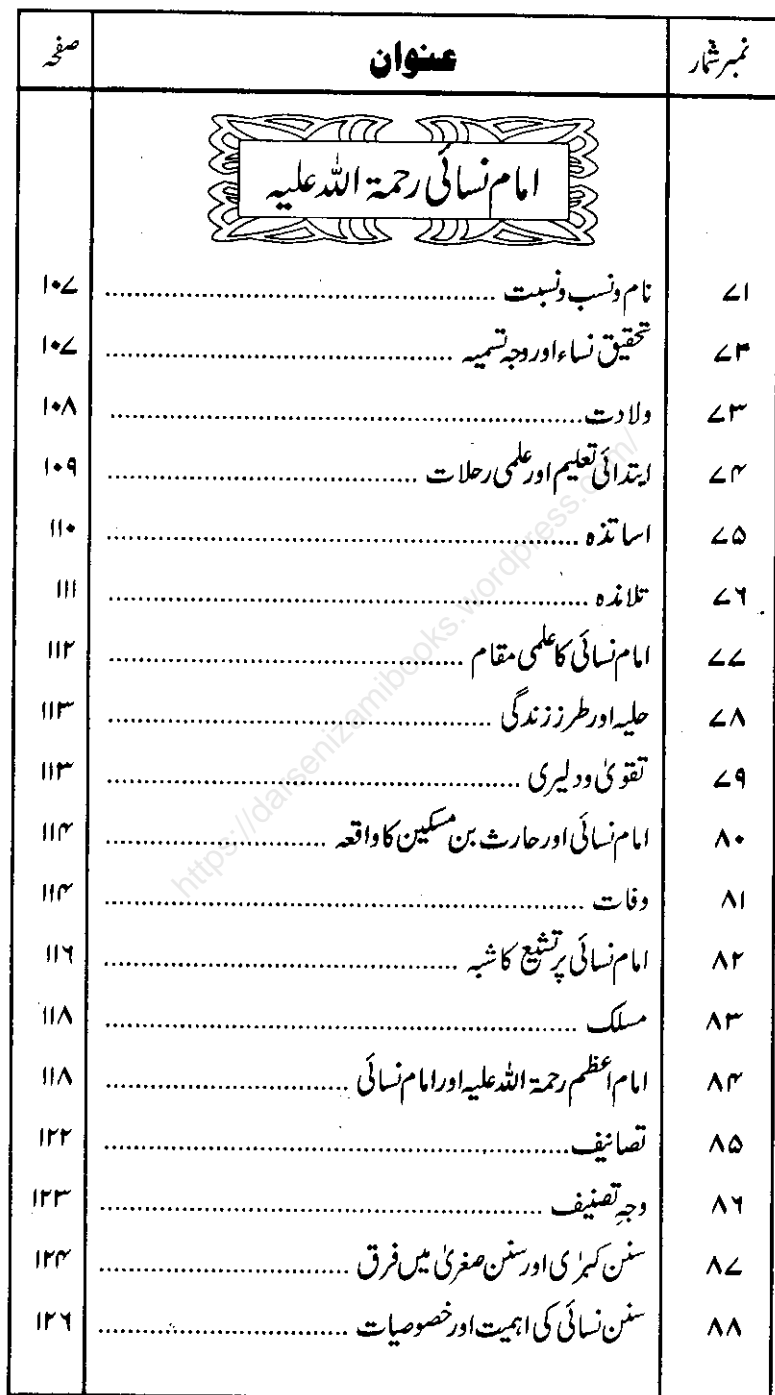 نمبر شمار عنوان صفحہ
امام نسائی رحمۃ اللہ علیہ
۷۱ نام ونسب ونسبت ........ ۱۰۷
۷۲ تحقیق نساء اور وجہ تسمیہ ........ ۱۰۷
۷۳ ولادت ........ ۱۰۸
۷۴ ابتدائی تعلیم اور علمی رحلات ........ ۱۰۹
۷۵ اساتذہ ........ ۱۱۰
۷۶ تلامذہ ........ ۱۱۱
۷۷ امام نسائی کا علمی مقام ........ ۱۱۲
۷۸ حلیہ اور طرز زندگی ........ ۱۱۳
۷۹ تقویٰ ودلیری ........ ۱۱۳
۸۰ امام نسائی اور حارث بن مسکین کا واقعہ ........ ۱۱۴
۸۱ وفات ........ ۱۱۴
۸۲ امام نسائی پر تشیع کا شبہ ........ ۱۱۶
۸۳ مسلک ........ ۱۱۸
۸۴ امام اعظم رحمۃ اللہ علیہ اور امام نسائی ........ ۱۱۸
۸۵ تصانیف ........ ۱۲۲
۸۶ وجہِ تصنیف ........ ۱۲۳
۸۷ سنن کبرٰی اور سنن صغریٰ میں فرق ........ ۱۲۴
۸۸ سنن نسائی کی اہمیت اور خصوصیات ........ ۱۲۶
https://darsenizamibooks.wordpress.com/